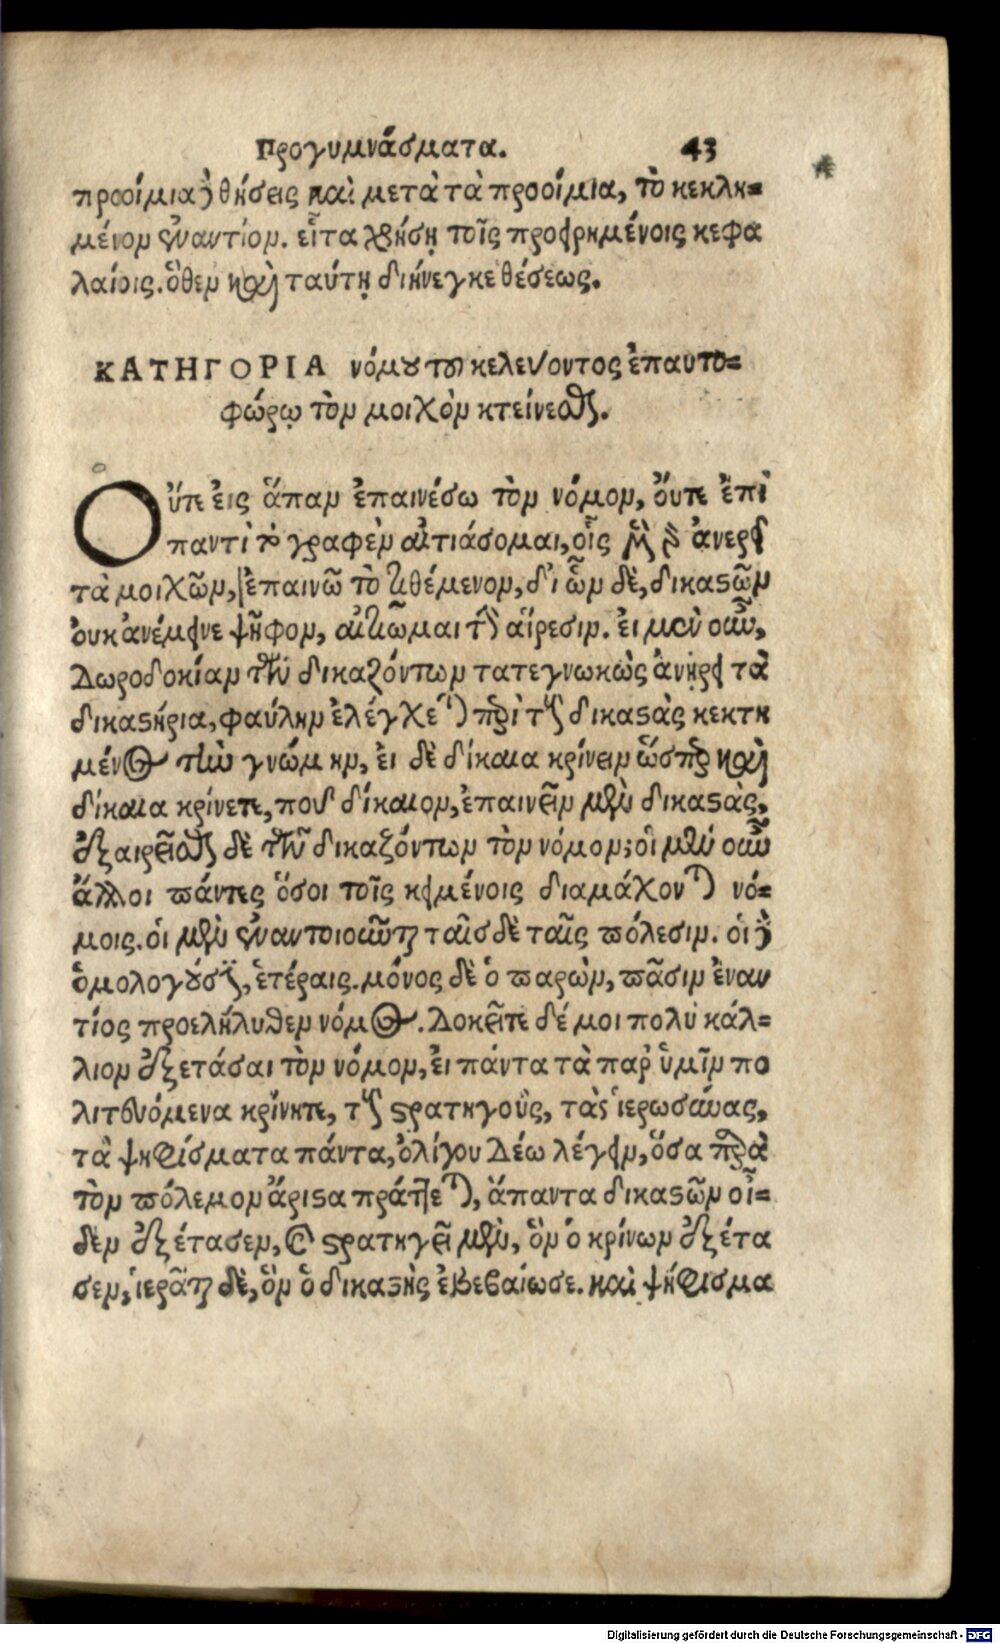 Προγυμνάσματα. 43
προοίμια δὲ θήσεις καὶ μετὰ τὰ προοίμια, τὸ κεκλη=
μένον ἐναντίον. εἶτα χρήσῃ τοῖς προειρημένοις κεφα
λαίοις. ὅθεν καὶ ταύτῃ διήνεγκε θέσεως.
ΚΑΤΗΓΟΡΙΑ νόμου τοῦ κελεύοντος ἐπαυτο=
φώρῳ τὸν μοιχὸν κτείνεσθαι.
Οὔτε εἰς ἅπαν ἐπαινέσω τὸν νόμον, ὄυτε ἔπι
παντὶ τὸ γραφὲν αἰτιάσομαι, οἷς μὲν γὰρ ἀνερεῖ
τὰ μοιχῶν, ἐπαινῶ τὸ τιθέμενον, δι ὧν δὲ, δικαστῶν
ὀυκ ἀνέμεινε ψῆφον, αἰτιῶμαι τὴν αἵρεσιν. ἐι μὲν οὖν,
Δωροδοκίαν τῶν δικαζόντων τατεγνωκὼς ἀνῃρει τὰ
δικαστήρια, φαύλην ἐλέγχεται περὶ τοὺς δικαστὰς κεκτη
μένος τὴν γνώμην, ἐι δὲ δίκαια κρίνειν ὥσπερ καὶ
δίκαια κρίνετε, ποῦ δίκαιον, ἐπαινεῖν μὲν δικαστὰς,
ἐξαιρεῖσθαι δὲ τῶν δικαζόντων τὸν νόμον; ὁι μὲν οὖν
ἄλλοι πάντες ὅσοι τοῖς κειμένοις διαμάχονται νό=
μοις. ὁι μὲν ἐναντιοιοῦνται ταῖς δὲ ταῖς πόλεσιν. ὁι δὲ
ὁμολογοῦσιν, ἑτέραις. μόνος δὲ ὁ παρὼν, πᾶσιν ἐναν
τίος προελήλυθεν νόμος. Δοκεῖτε δέ μοι πολὺ κάλ=
λιον ἐξετάσαι τὸν νόμον, ἐι πάντα τὰ παρ ὑμῖν πο
λιτευόμενα κρίνητε, τοὺς στρατηγοὺς, τὰς ἱερωσύνας,
τὰ ψηφίσματα πάντα, ὀλίγου Δέω λέγειν, ὅσα παρὰ
τὸν πόλεμον ἄριστα πράττεται, ἅπαντα δικαστῶν οἶ=
δεν ἐξέτασεν, καὶ στρατηγεῖ μὲν, ὃν ὁ κρίνων ἐξέτα
σεν, ἱερᾶται δὲ, ὃν ὁ δικαστὴς ἐβεβαίωσε. καὶ ψήφισμα
Digitalisierung gefördert durch die Deutsche Forschungsgemeinschaft - DFG